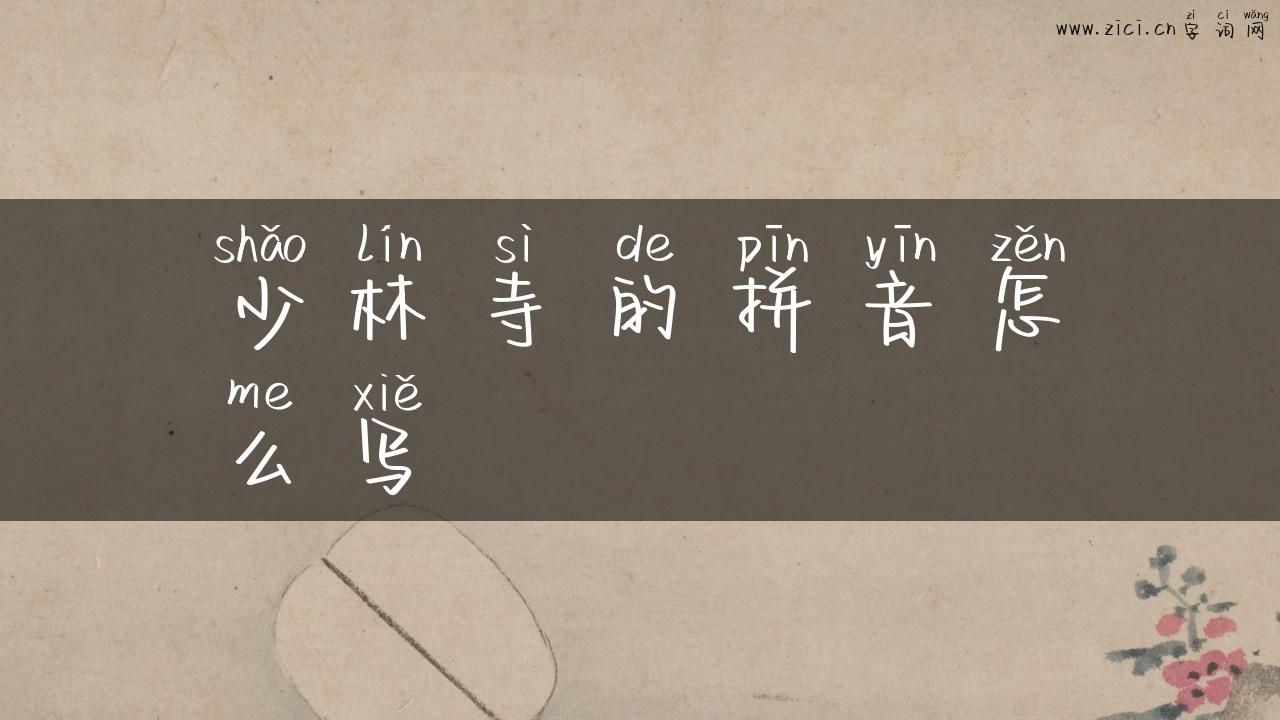 zì cí wǎng
www.zici.cn字词网
shǎo lín sì de pīn yīn zěn
少林寺的拼音怎
me xiě
么写